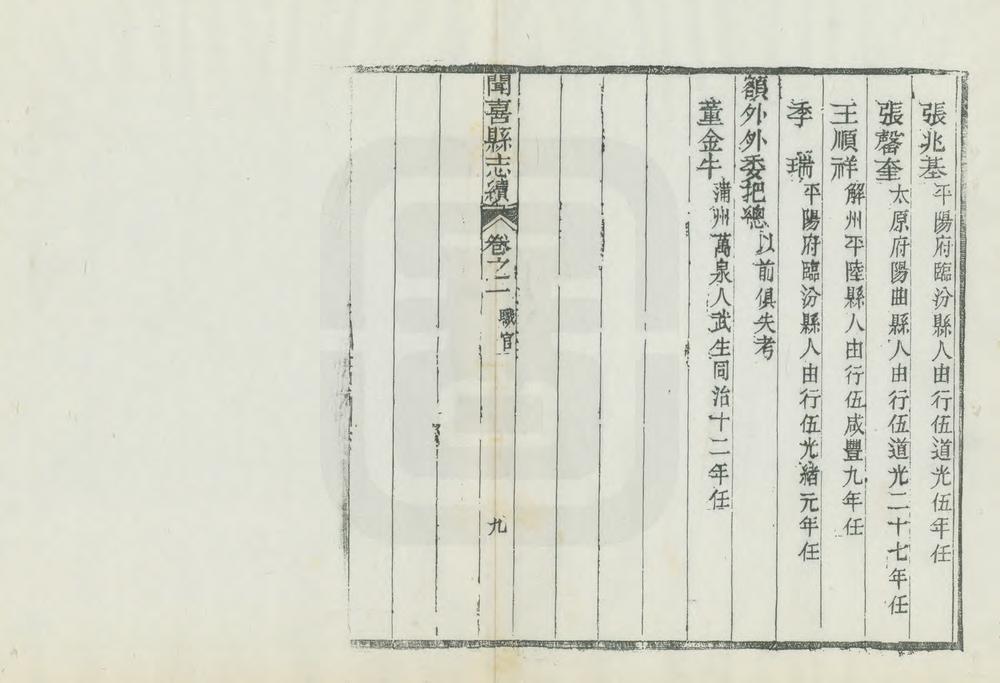 張兆基平陽府臨汾縣人由行伍道光伍年任
張馨奎太原府陽曲縣人由行伍道光二十七年任
王順祥解州平陸縣人由行伍咸豐九年任
季瑞平陽府臨汾縣人由行伍光緒元年任
額外外委把總以前俱失考
董金牛蒲州萬泉人武生同治十二年任
聞喜縣志續卷之二職官九